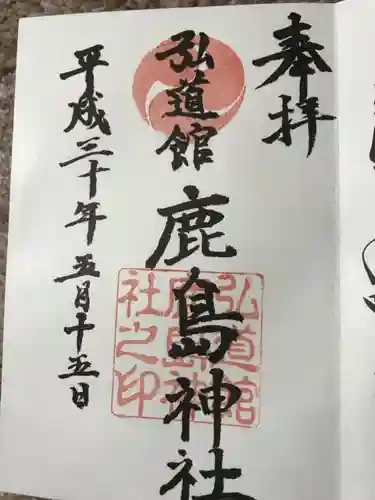 奉拝
弘道館
鹿島神社
平成三十年五月十五日
弘道館
鹿島神
社之印